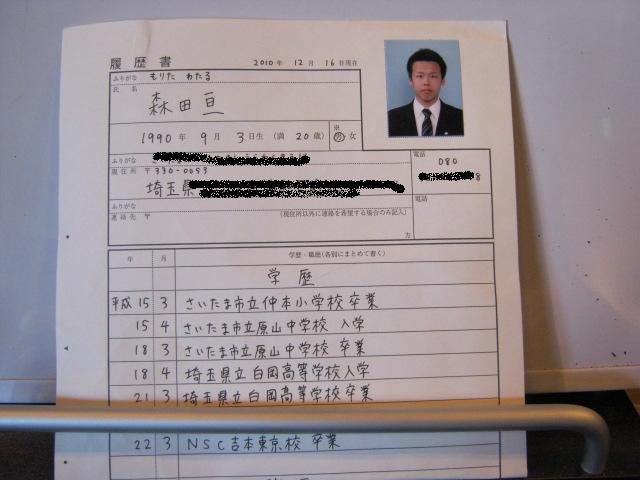 履歴書 2010年 12月 16日現在
ふりがな もりた わたる
氏名 森田亘
1990年 9月 3日生 (満 20歳) ※ 男 女
ふりがな
現住所 〒330-0053
埼玉県
電話
080
8
ふりがな
連絡先 〒 (現住所以外に連絡を希望する場合のみ記入)
方
電話
年 月 学歴・職歴(各別にまとめて書く)
学歴
平成15 3 さいたま市立仲本小学校卒業
15 4 さいたま市立原山中学校 入学
18 3 さいたま市立原山中学校 卒業
18 4 埼玉県立白岡高等学校入学
21 3 埼玉県立白岡高等学校卒業
22 3 NSC吉本東京校 卒業